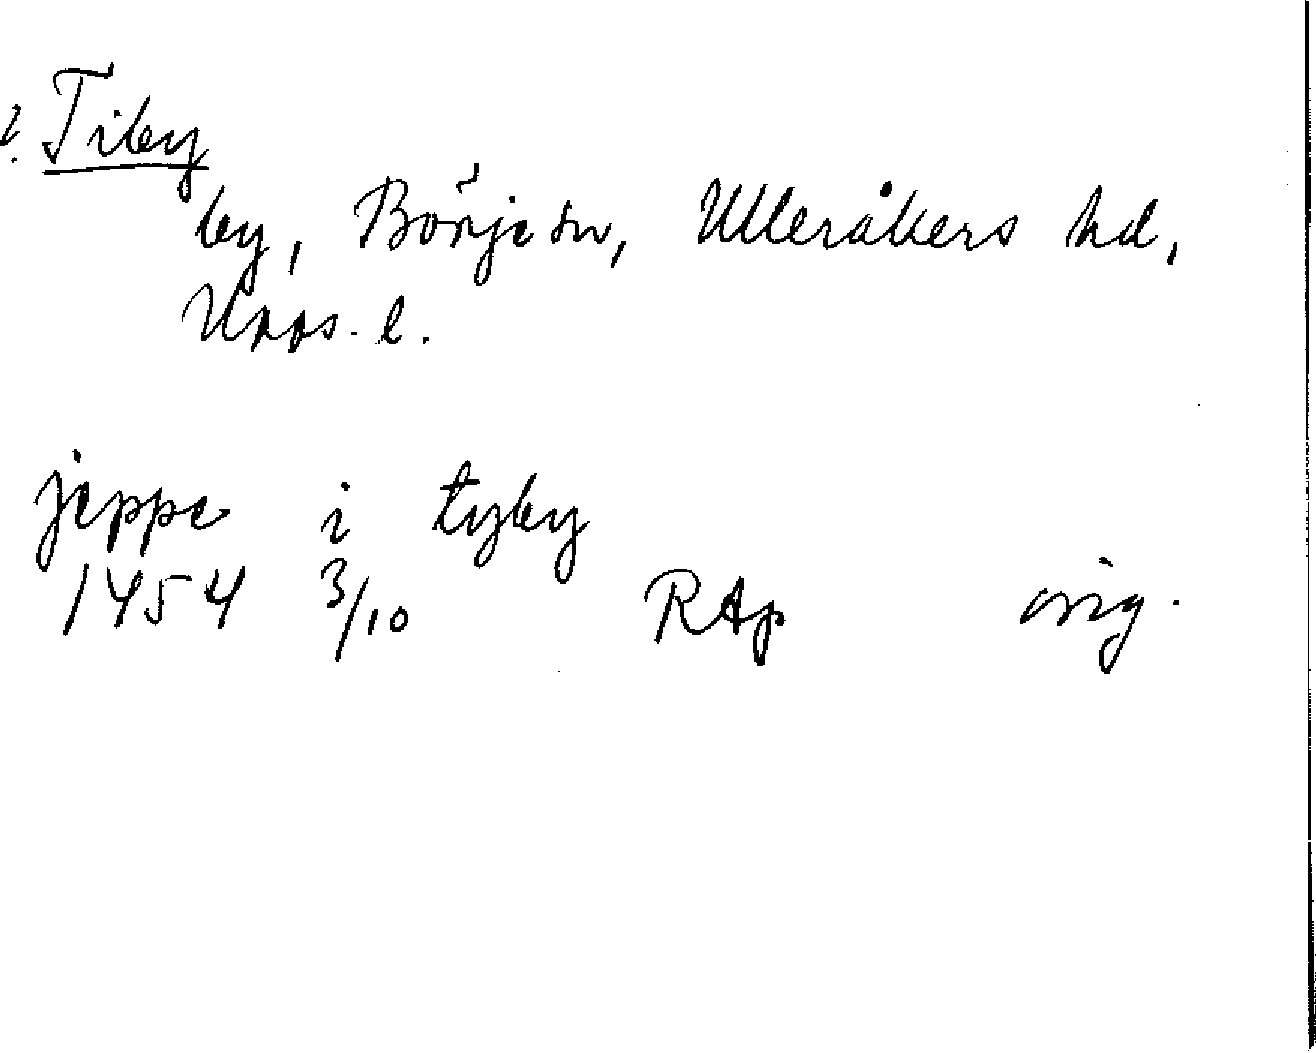 ?. Tiby
by, Börje sn, Ulleråkers hd,
Upps. l.
jeppe i tyby
1454 3/10 RAp orig.